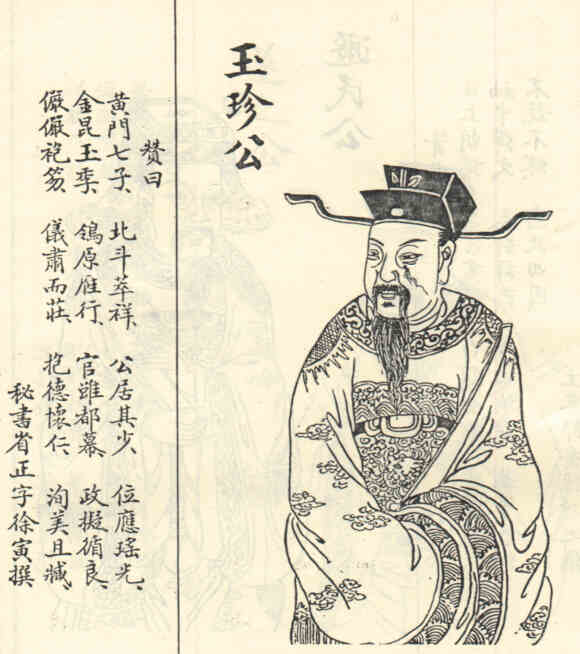 玉珍公
賛曰
黄門七子、北斗萃祥、公居其少、位應瑤光、
金昆玉季、鴒原雁行、官雖都幕、政擬循良、
儼儼袍笏、儀肅而莊、抱德懷仁、洵美且臧、
秘書省正字徐寅撰